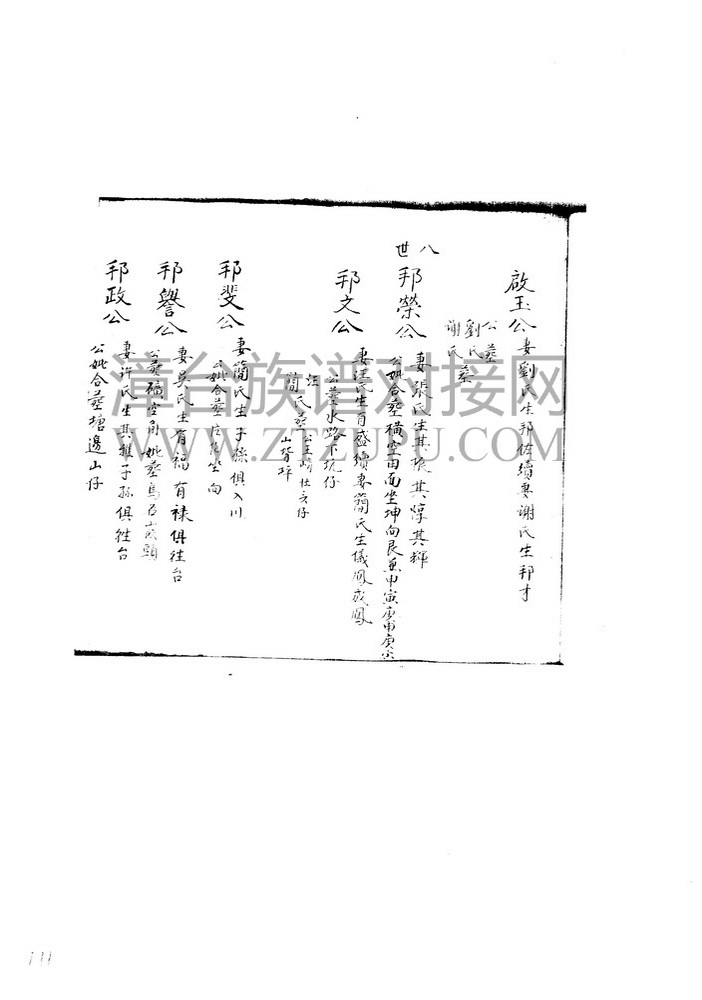 啟玉公 妻劉氏生邦佐續妻謝氏生邦才
公葬
劉氏
謝氏葬
八世
邦榮公 妻張氏生其振其惇其輝
公妣合葬橫空田面坐坤向艮兼申寅庚申庚寅
邦文公 妻江氏生百盛續妻簡氏生儀鳳成鳳
公葬水路下坑仔
江
簡氏葬
邦斐公 妻簡氏生子孫俱入川
公妣合葬
坐向
邦譽公 妻吳氏生有福有祿俱往台
公葬 妣葬烏石 頭
邦政公 妻許氏生其推子孫俱往台
公妣合葬塘邊山仔
漳台族谱对接网
WWW.ZTZUPU.COM
111